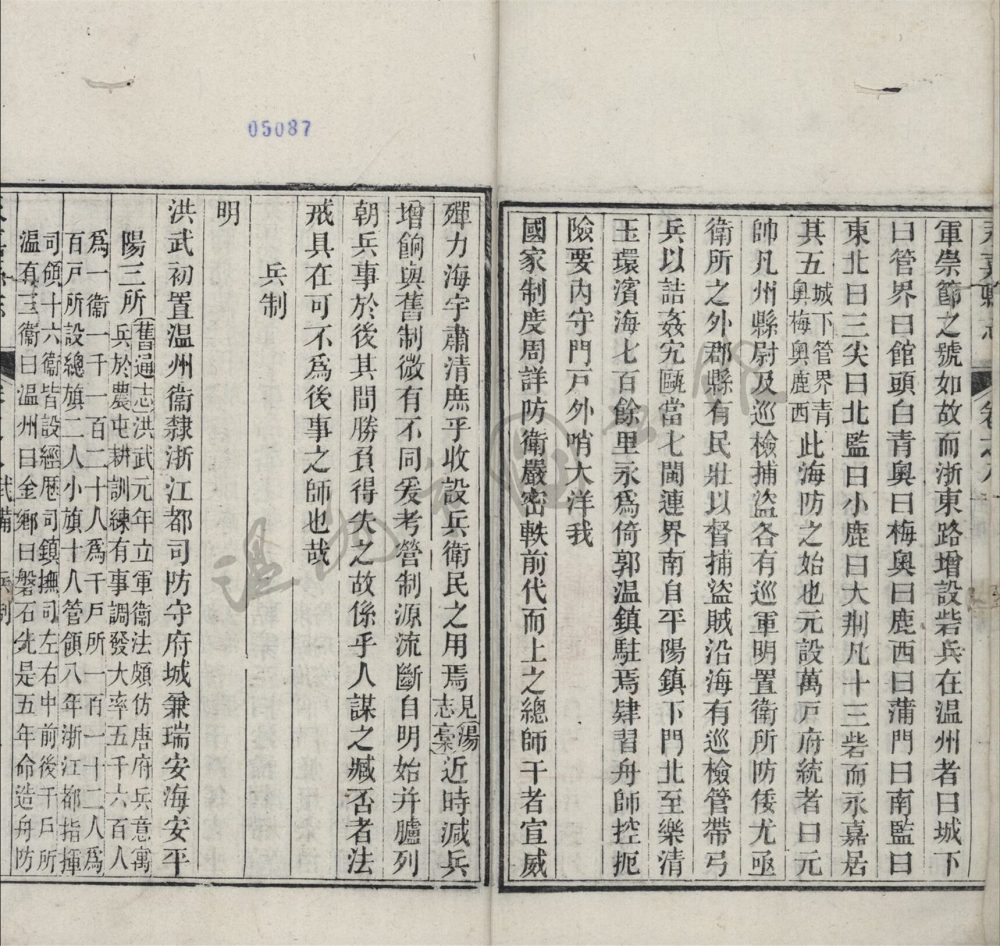 永嘉縣志 卷之八
軍崇節之號如故而浙東路增設砦兵在温州者曰城下
曰管界曰館頭白青奧曰梅奧曰鹿西曰蒲門曰南監曰
東北曰三尖曰北監曰小鹿曰大荆凡十三砦而永嘉居
其五城下管界青奧梅奧鹿西此海防之始也元設萬戸府統者曰元
帥凡州縣尉及巡檢捕盜各有巡軍明置衛所防倭尤亟
衛所之外郡縣有民壯以督捕盜賊沿海有巡檢管帶弓
兵以詰奸宄甌當七閩連界南自平陽鎮下門北至樂清
玉環濱海七百餘里永爲倚郭温鎮駐焉肆習舟師控扼
險要內守門戸外哨大洋我
國家制度周詳防衛嚴密軼前代而上之總師干者宣威
殫力海宇肅清庶乎收設兵衛民之用焉見湯志槀近時減兵
增餉與舊制微有不同爰考營制源流斷自明始并臚列
朝兵事於後其間勝負得失之故係乎人謀之臧否者法
戒具在可不爲後事之師也哉
兵制
明
洪武初置温州衞隸浙江都司防守府城兼瑞安海安平
陽三所舊通志洪武元年立軍衞法頗仿唐府兵意寓
兵於農屯耕訓練有事調發大率五千六百人
爲一衞一千一百二十八爲千戸所一百一十二人爲
百戸所設總旗二人小旗十人管領八年浙江都指揮
司領十六衞皆設經歴司鎮撫司左右中前後千戸所
温有三衞曰温州曰金鄉曰磐石先是五年命造舟防
武備 兵制
05087